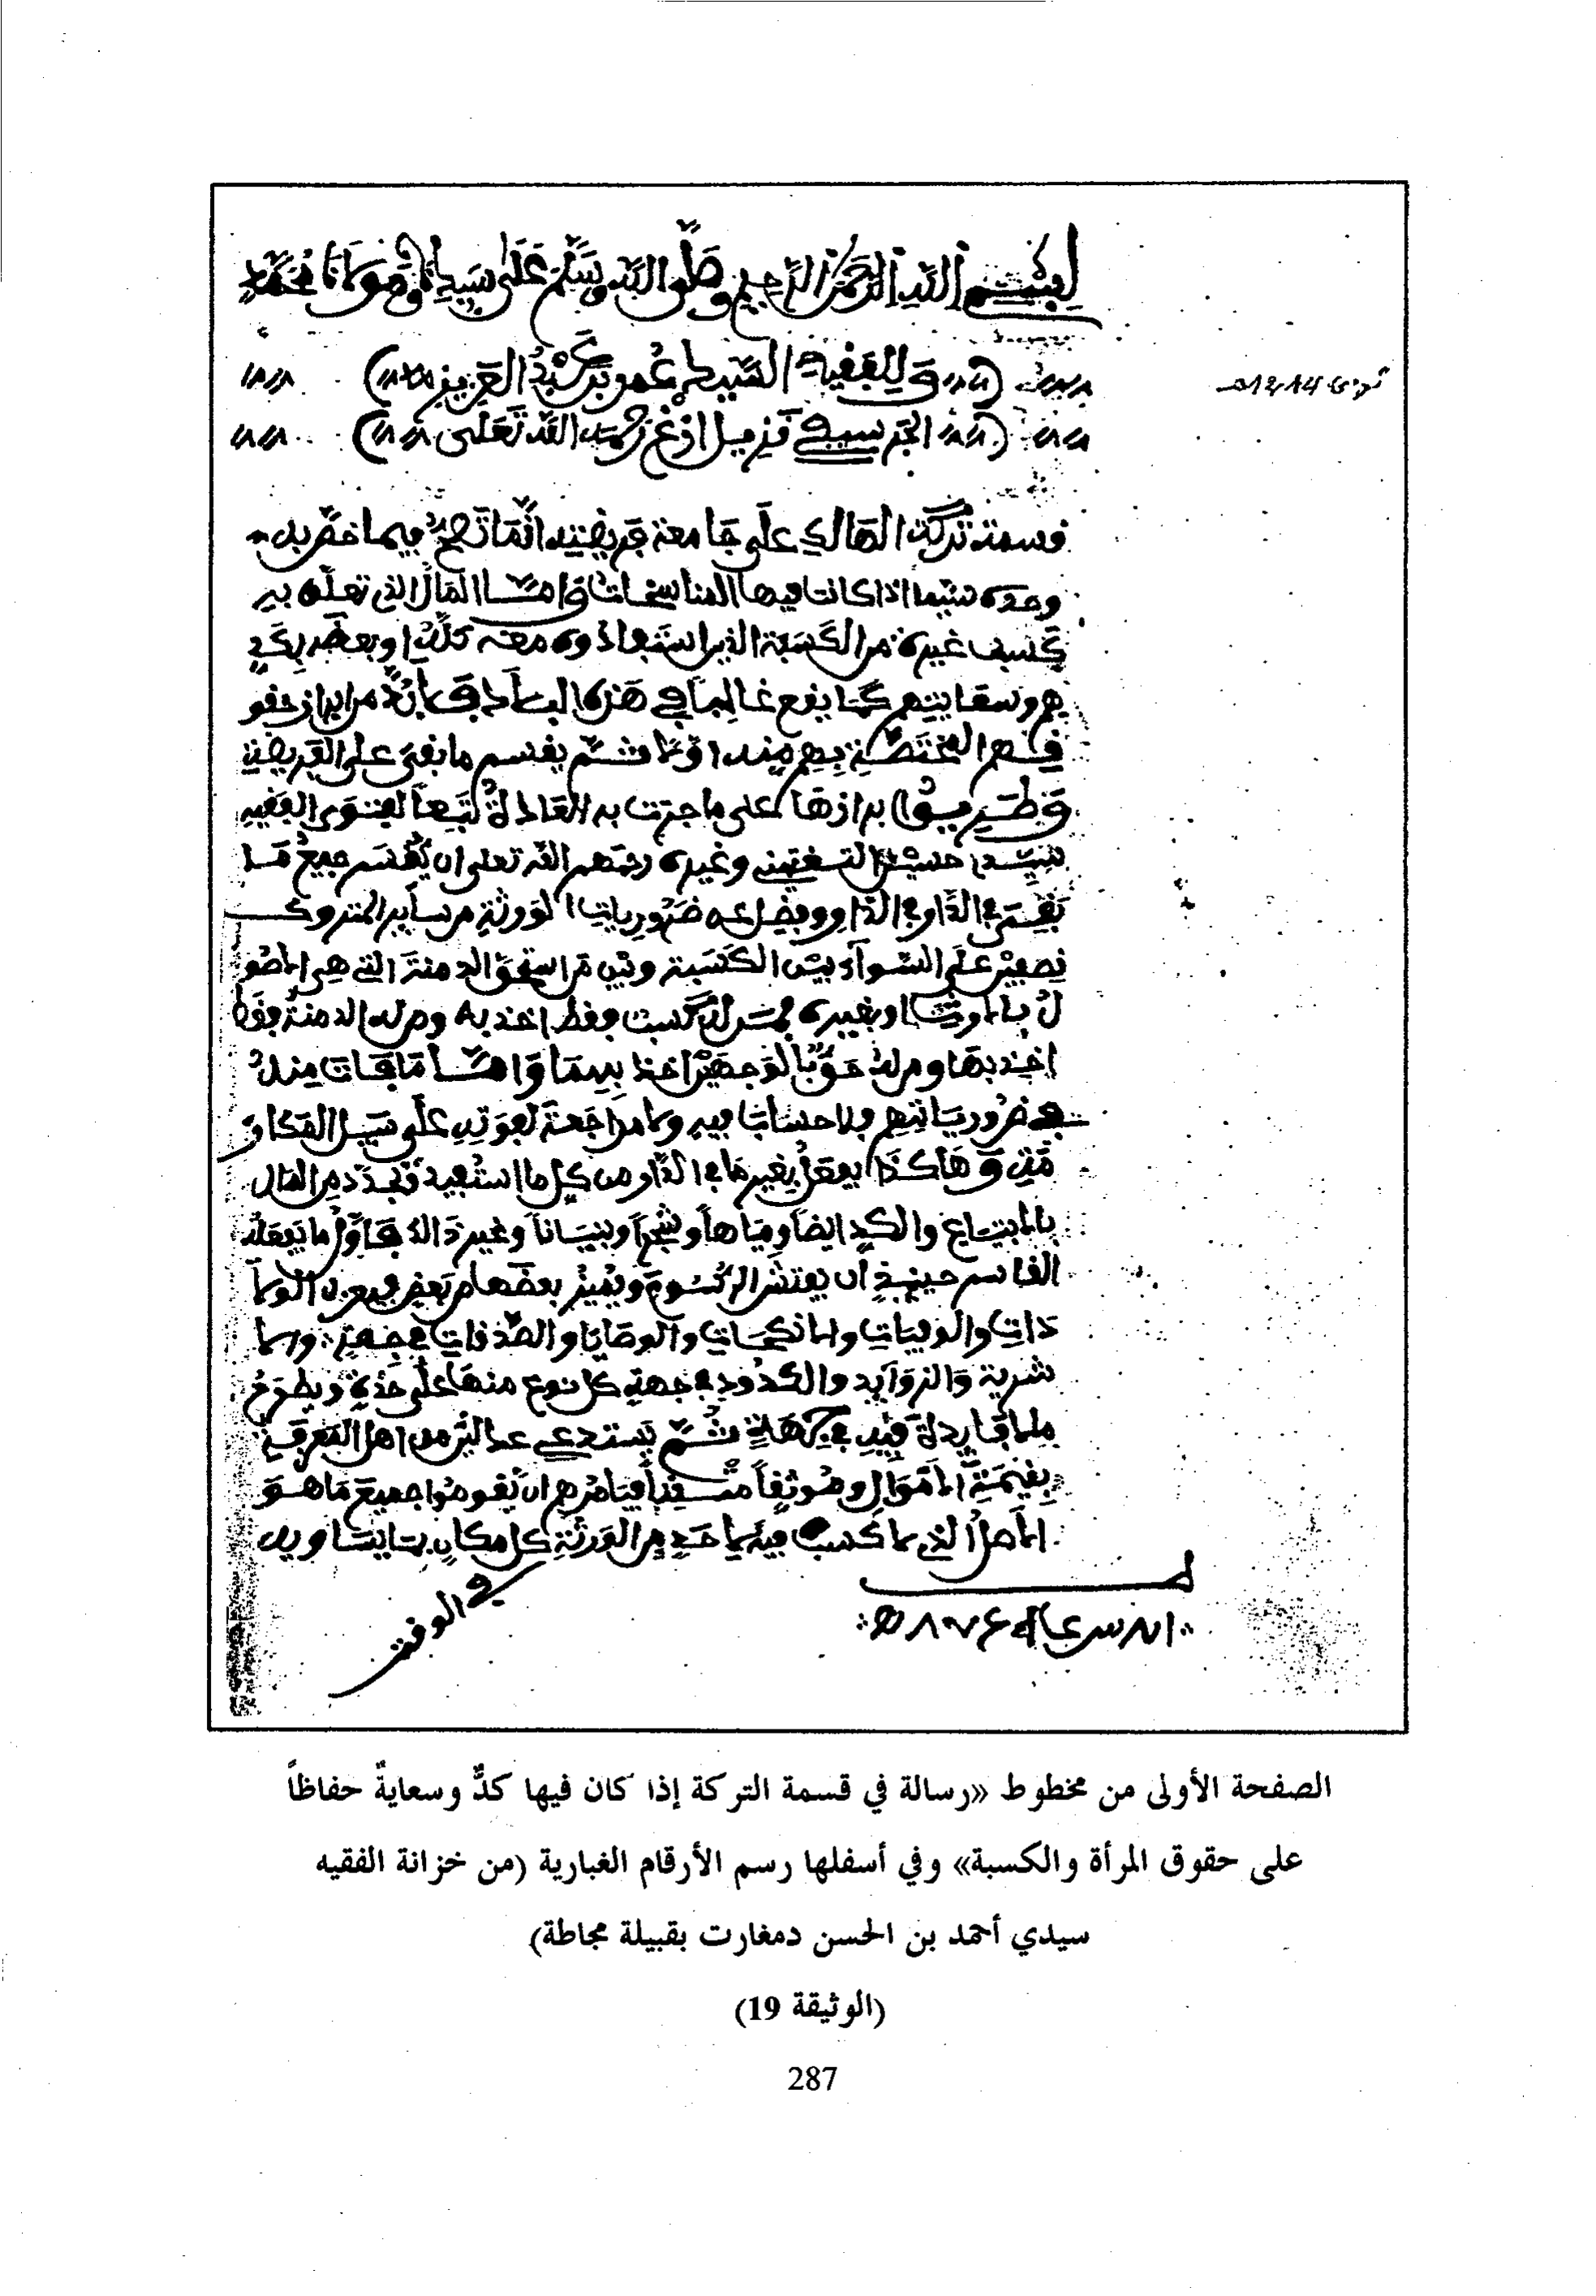 بسم الله الرحمن الرحيم وصلى الله وسلم على سيدنا ومولانا محمد
توفي 1214هـ
وللفقيه السيد عمر بن عبد العزيز
الجرسيفي نزيل ادغ رحمه الله تعلى
قسمة تركة الهالك على جامعة فريضته انما تصح فيما خص به
وحده سيما اذا كانت فيها المناسخات وامـا المال الذي تعلق به
كسب غيره من الكسبة الذين استفادوه معه كله او بعضه بكد
هم وسعايتهم كما يقع غالبا في هذه البلاد فلا بد من ابراز حقو
قهم المختصة بهم منه اولا ثم يقسم ما بقي على الفريضة
وطريق ابرازها على ما جرت به العادة تبعا لفتوى الفقيه
وغيره رحمهم الله تعلى ان يقسم جميع مـا
بقي في الدار وفضل عن ضروريات الورثة من سائر المتروك
نصفين على السواء بين الكسبة وبين من استحق الدمنة التي هي الاصو
ل بالارث او بغيره فمن له كسب فقط اخذ به ومن له الدمنة فقط
اخذ بها ومن له حق بالوجهين اخذ بهما وامـا ما فات منه
في ضرورياتهم فلا حساب فيه ولا مراجعة لفوته على سبيل المكار
مة وهاكذا يفعل بغير ما في الدار من كل ما استفيد وتجدد من المال
بالابتياع والكد ايضا ومياها وشجرا وبنيانا وغير ذالك فاول ما يفعله
القاسم حينئذ ان يفتش الرسوم ويميز بعضها من بعض فيعزل الولا
دات والوفيات والانكحات والوصايا والصدقات في جهة والا
شرية والزوايد والكدود في جهة كل نوع منها على حدة ويطرح
ما لا فايدة فيه في جهة ثم يستدعي عدالين من اهل المعرفة
بقيمة الاموال وموثقا متقنا فيامرهم ان يقوموا جميع ما هـو
الاصل الذي لا كسب فيه لاحد من الورثة كل مكان بما يساويه
في الوقت
الصفحة الأولى من مخطوط «رسالة في قسمة التركة إذا كان فيها كدٌّ وسعايةٌ حفاظاً
على حقوق المرأة والكسبة» وفي أسفلها رسم الأرقام الغبارية (من خزانة الفقيه
سيدي أحمد بن الحسن دمغارت بقبيلة مجاطة)
(الوثيقة 19)
287